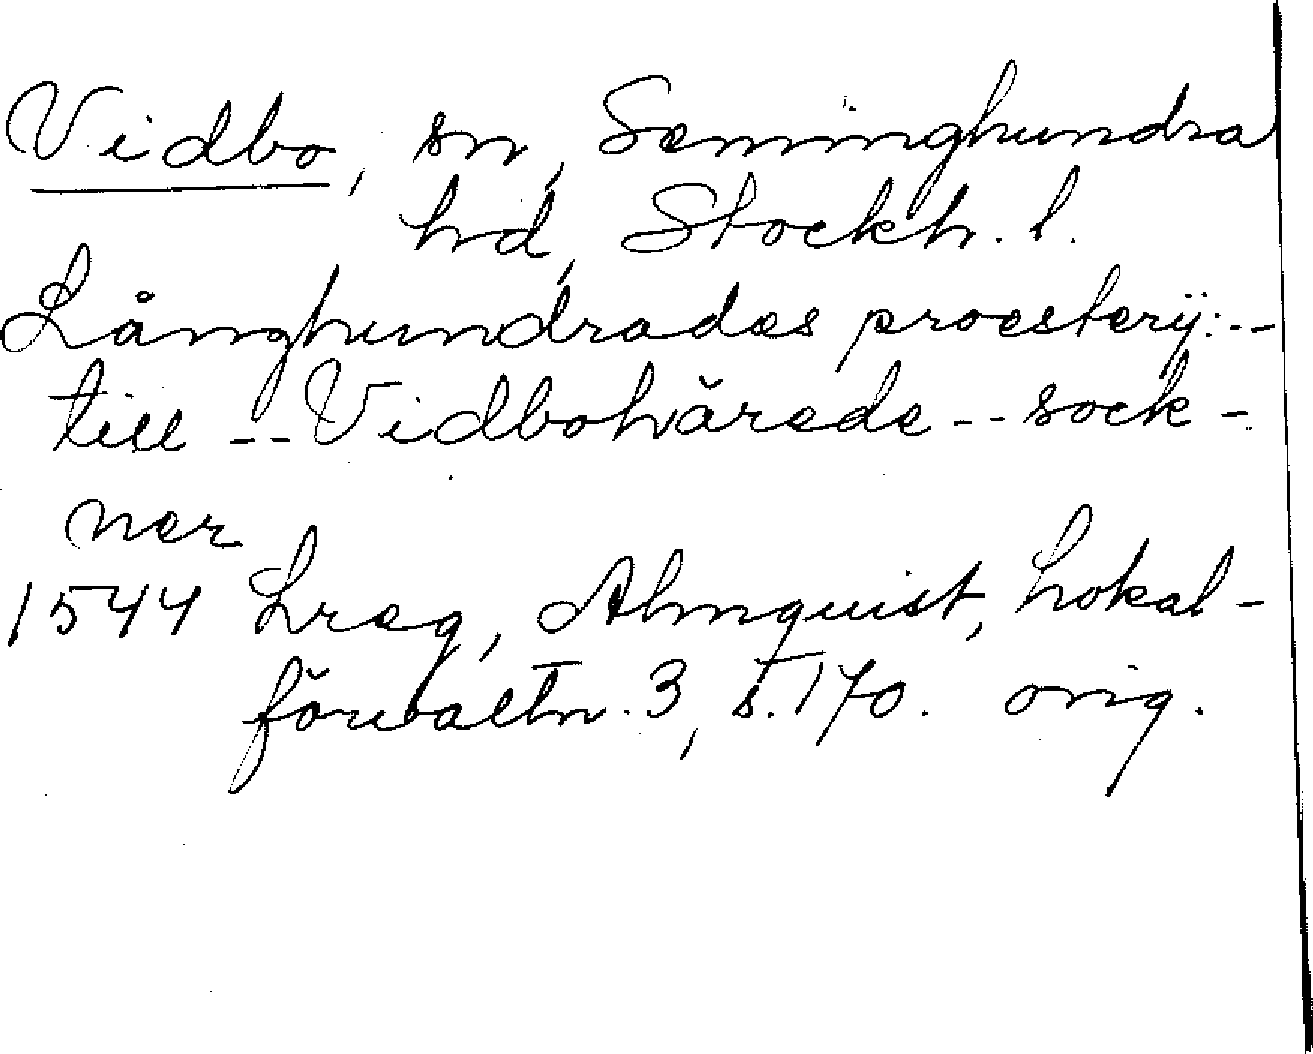 Vidbo, sn, Seminghundra
hd, Stockh. l.
Långhundrades proesterij: --
till -- Vidbohärade -- sock-
ner
1544 Lreg, Almquist, Lokal-
förvaltn. 3, s. 170. orig.